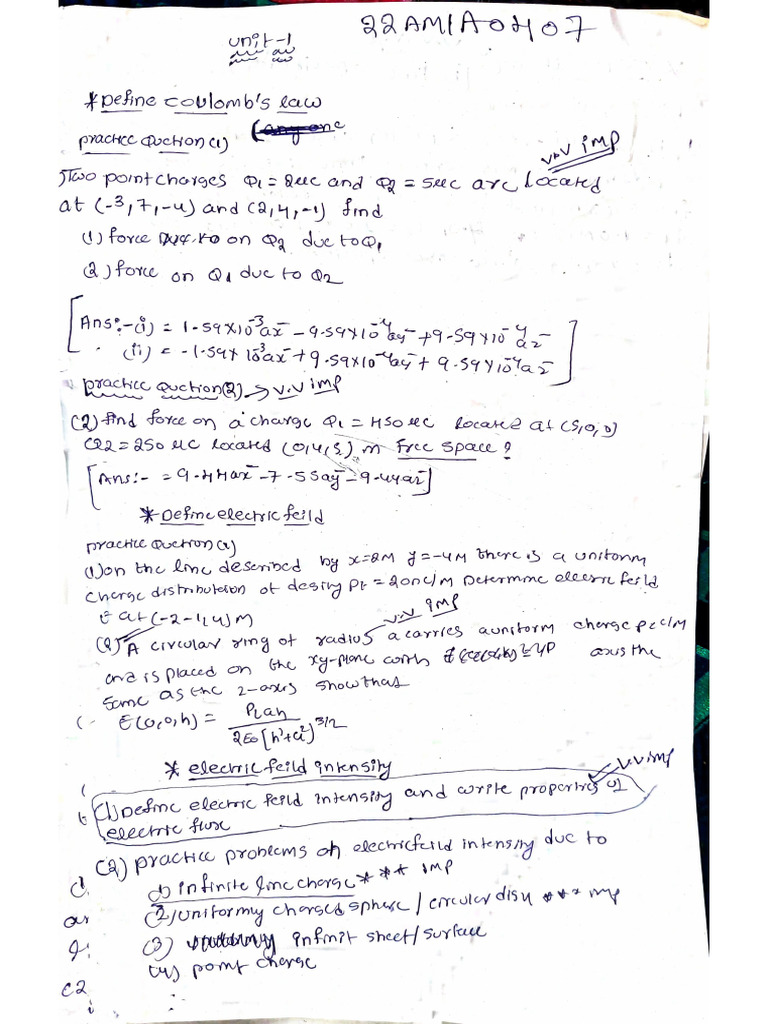 22AM1A0407
unit-1
*Define coulomb's law
practice Quction(1) (any one
v.v imp
1) Two point charges Q1 = 2uc and Q2 = 5uc are Located
at (-3,7,-4) and (2,4,-1) find
(1) force on Q2 due to Q1
(2) force on Q1 due to Q2
[Ans:-(i) = 1.59x10^-3 ax̄ - 9.59x10^-4 aȳ + 9.59x10^-4 az̄
(ii) = -1.59x10^-3 ax̄ + 9.59x10^-4 aȳ + 9.59x10^-4 az̄]
practice Quction(2) → v.v imp
(2) find force on a charge Q1 = 450 uc located at (5,0,0)
Q2 = 250 uc located (0,4,5) in free space?
[Ans:- = 9.44ax̄ - 7.55aȳ - 9.44az̄]
* Define electric feild
practice Quction(2)
(1) on the line described by x=2M y=-4M there is a uniform
charge distribution of desity Pl = 20nc/M Determine electric feild
E at (-2-1,4) M
v.v imp
(2) A circular ring of radius a carries a uniform charge PL c/M
and is placed on the xy-plane with axis the
same as the z-axis show that
E(0,0,h) = PLah / 2E0[h²+a²]^3/2
* electric feild intensity
v.v imp
(1) Define electric feild intensity and write properties of
electric flux
(2) practice problems on electric feild intensity due to
(1) infinite line charge *** imp
(2) uniformy charged sphere / circular disk *** imp
(3) infinit sheet / surface
(4) point charge